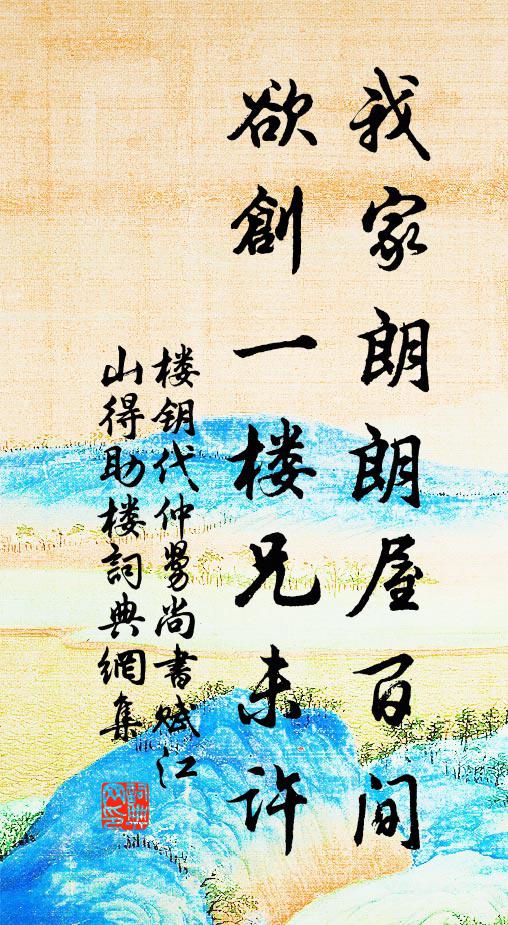 我家朗朗屋百间
欲創一楼兄未許
楼钥代仲舅尚書赋江
山得助楼詞典網集